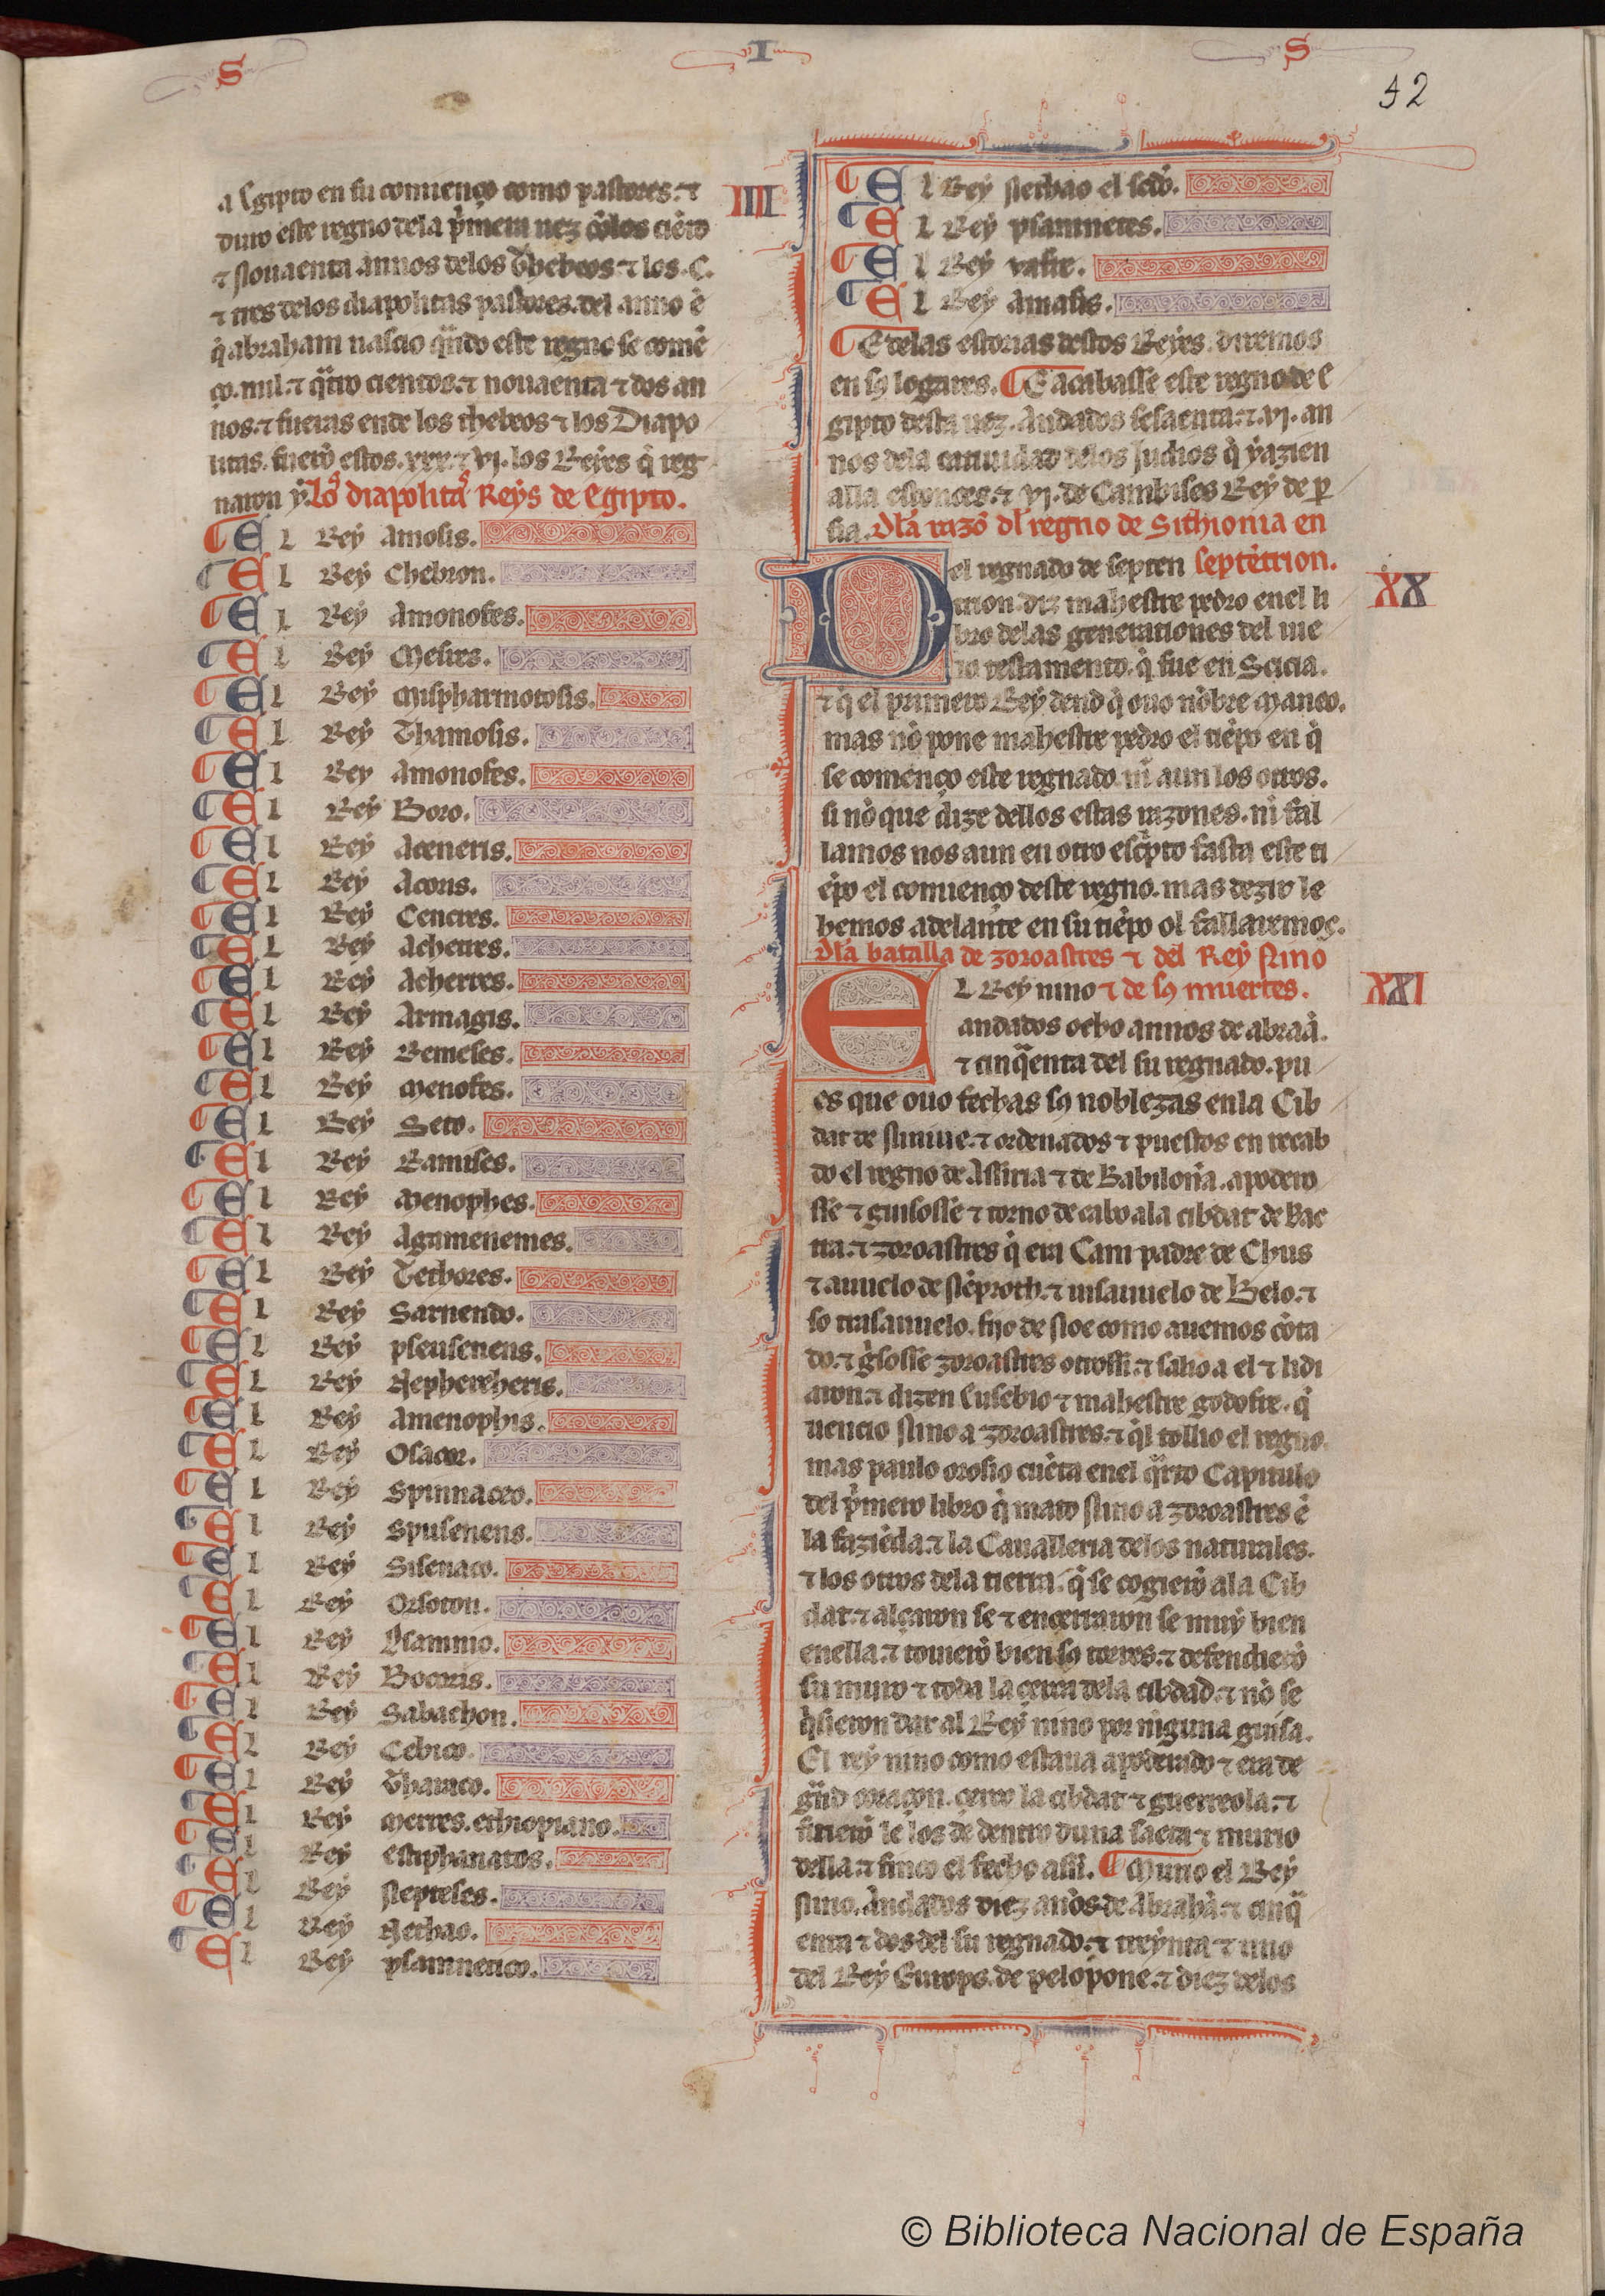 S
I
S
42
a Egipto en su comienço como pastores. ⁊
duro este regno dela p̍mera uez cō los ciēto
⁊ Nouaenta annos delos Thebeos. ⁊ los. C.
⁊ tres delos diapolitas pastores. del anno ē
q̄ abraham nascio qͣndo este regno se comē
ço. mil. ⁊ qͣtro cientos. ⁊ nouaenta ⁊ dos an
nos. ⁊ fueras ende los thebeos ⁊ los Diapo
litas. fuerō estos. xxx. ⁊ vj. los Reyes q̄ reg
naron y. Lo⁹ diapolita⁹ Reys de Egipto.
El Rey Amosis.
El Rey Chebron.
El Rey Amonofes.
El Rey Mefres.
El Rey Mispharmotosis.
El Rey Thamosis.
El Rey Amonofes.
El Rey Boro.
El Rey Aceneris.
El Rey Acoris.
El Rey Cencres.
El Rey Acherres.
El Rey Acherres.
El Rey Armagis.
El Rey Remeses.
El Rey Menofes.
El Rey Seto.
El Rey Ramises.
El Rey Menophes.
El Rey Agamenemes.
El Rey Techores.
El Rey Sarnendo.
El Rey pseusenens.
El Rey Nephercheris.
El Rey Amenophis.
El Rey Osacor.
El Rey Spinnaceo.
El Rey Spusenens.
El Rey Sisenaco.
El Rey Orsoton.
El Rey Psammo.
El Rey Bocoris.
El Rey Sabachon.
El Rey Cebico.
El Rey Tharaco.
El Rey Merres. ethiopiano.
El Rey Estiphanatos.
El Rey Nepteses.
El Rey Nechao.
El Rey psamnetico.
IIII
El Rey Nechao el scdō.
El Rey psamnetes.
El Rey vafre.
El Rey Amasis.
E delas estorias destos Reyes. diremos
en sꝯ logares. E acabasse este regno de E
gipto desta uez. Andados sesaenta. ⁊ vj. an
nos dela catiuidad delos Judios q̄ yazien
alla estonces. ⁊ vj. de Cambises Rey de ꝑ
sia. Dl̄a razō dl̄ regno de Sithionia en
septētrion.
XX
Del regnado de septen
trion. diz mahestre pedro enel li
bro delas generationes del uie
io testamento. q̄ fue en Scicia.
⁊ q̄ el primero Rey dend q̄ ouo nōbre Maneo.
mas nō pone mahestre pedro el tiēpo en q̄
se començo este regnado. nī aun los otros.
si nō que dize dellos estas razones. ni fal
lamos nos aun en otro esc̍pto fasta este ti
ēpo el comienço deste regno. mas dezir le
hemos adelante en su tiēpo ol fallaremos.
Dl̄a batalla de zoroastres ⁊ del Rey Nino
⁊ de sꝯ muertes.
XXI
El Rey nino
andados ocho annos de abraā.
⁊ cinqͣenta del su regnado. pu
es que ouo fechas sꝯ noblezas enla Cib
dat de Niniue. ⁊ ordenados ⁊ puestos en recab
do el regno de Assiria ⁊ de Babilonia. apodero
sse ⁊ guisosse ⁊ torno de cabo ala cibdat de Bac
tra. ⁊ zoroastres q̄ era Cam padre de Chus
⁊ auuelo de Nēproth. ⁊ uisauuelo de Belo. ⁊
so trasauuelo. fijo de Noe como auemos cōta
do. ⁊ g̍sosse zoroastres otrossi. ⁊ salio a el ⁊ lidi
aron. ⁊ dizen Eusebio ⁊ mahestre godofre. q̄
uencio Nino a zoroastres. ⁊ q̄l tollio el regno.
mas paulo orosio cuēta enel qͣrto Capitulo
del p̍mero libro q̄ mato Nino a zoroastres ē
la faziēda. ⁊ la Caualleria delos naturales.
⁊ los otros dela tierra. q̄ se cogierō ala Cib
dat. ⁊ alçaron se ⁊ encerraron se muy bien
enella. ⁊ touierō bien sꝯ torres. ⁊ defendierō
su muro ⁊ toda la cerca dela cibdad. ⁊ nō se
q̍sieron dar al Rey nino por ninguna guisa.
El rey nino como estaua apoderado ⁊ era de
gͣnd coraçon. cerco la cibdat ⁊ guerreola. ⁊
firierō le los de dentro duna saeta ⁊ murio
della. ⁊ finco el fecho assi. Murio el Rey
Nino. Andados diez anōs de Abrahā. ⁊ cinqͣ
enta ⁊ dos del su regnado. ⁊ treynta ⁊ uno
del Rey Europs. de pelopone. ⁊ diez delos
© Biblioteca Nacional de España